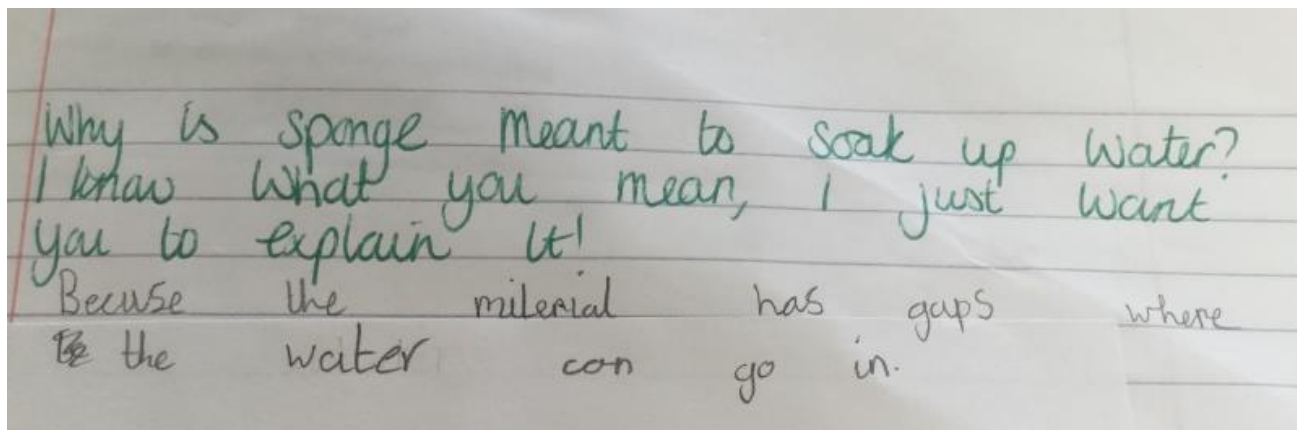 Why is sponge meant to soak up water?
I know what you mean, I just want
you to explain it!
Becuse the milerial has gaps where
the water can go in.